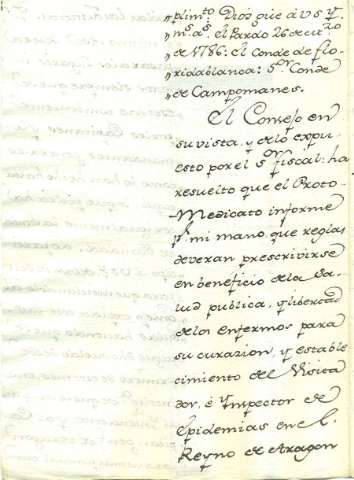 "plim.to Dios gũe à V S Y.
"m.s a.s el Pardo 26 de en.ro
"de 1786: el Conde de flo-
"ridablanca: S.or Conde
"de Campomanes.
El Consejo en
su vista, y de lo expu-
esto por el S.or fiscal: ha
resuelto que el Proto-
Medicato informe
p.r mi mano, que reglas
deveran prescrivirse
en beneficio de la Sa-
lud publica, y libertad
de los enfermos para
su curazion, y estable
cimiento del Visita
dor, è Ynspector de
Epidemias en el
Reyno de Aragon